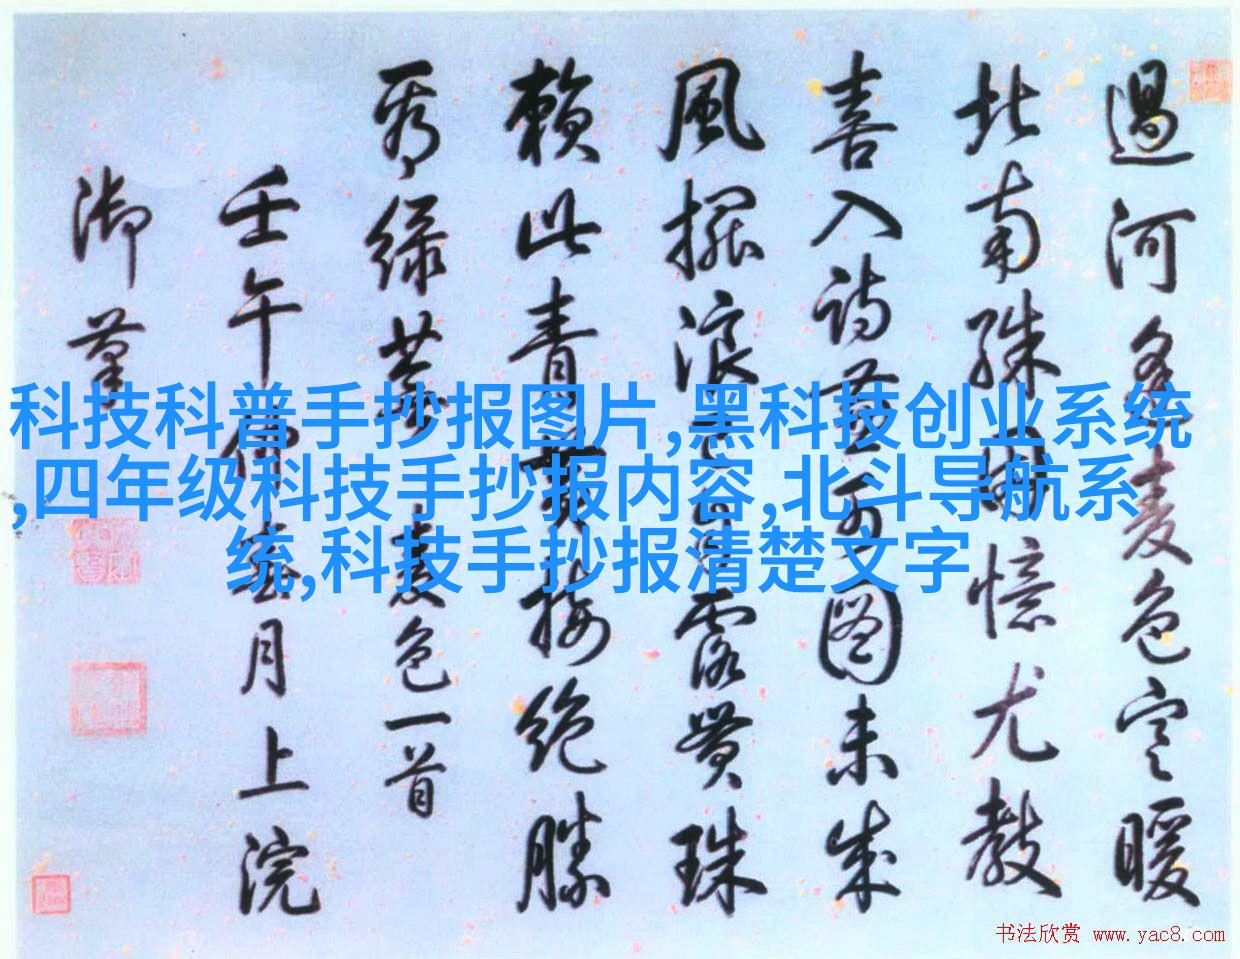 過河麦色暖
北南殊憶尤教
喜入詩可圖未成
風擺浪露貫珠
賴此青黄接絶勝
麦色一首
壬午仲春月上浣
御筆
科技科普手抄报图片,黑科技创业系统
,四年级科技手抄报内容,北斗导航系
统,科技手抄报清楚文字
书法欣赏 www.yac8.com